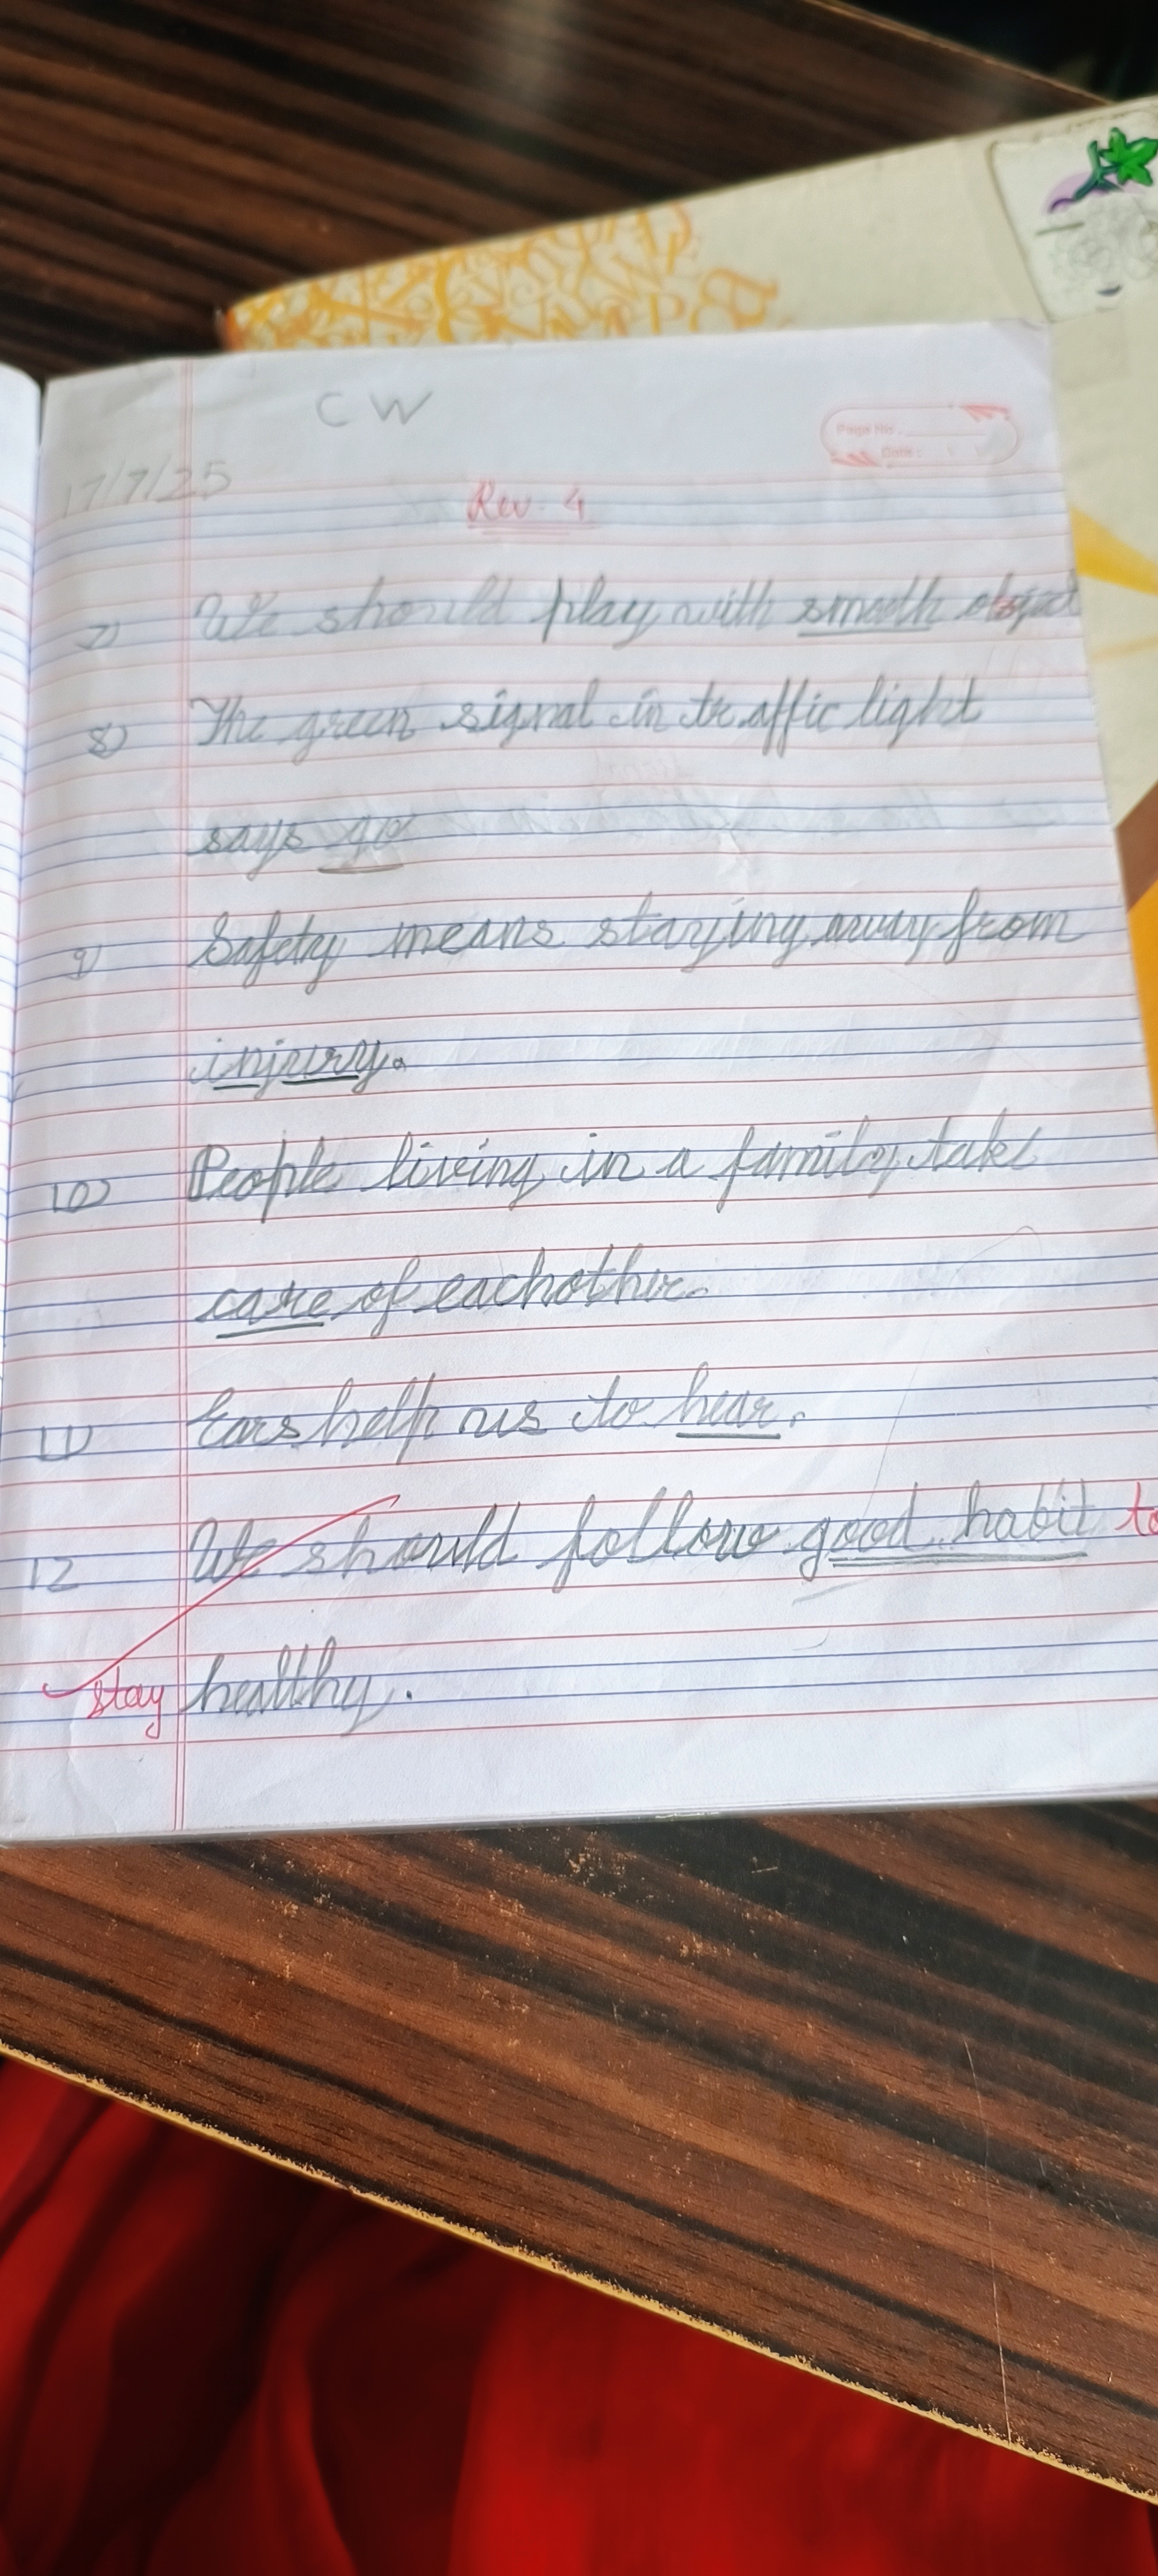 CW
Page No.
Date :
17/7/25
Rev. 4
7) We should play with smooth object
8) The green signal in traffic light
says go
9) Safety means staying away from
injury.
10) People living in a family take
care of eachother.
11) Ears help us to hear.
12 We should follow good habit to
stay healthy.